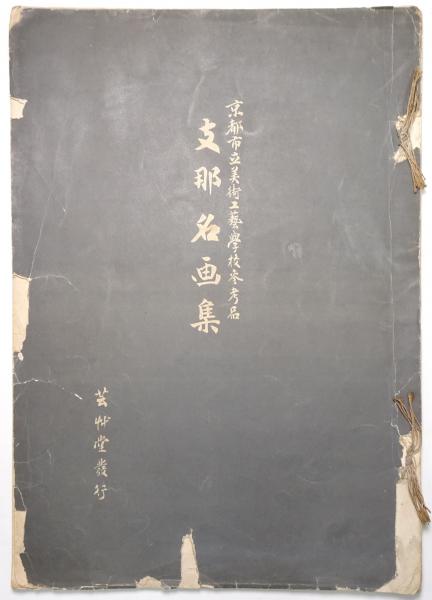 京都市立美術工藝學校参考品
支那名画集
芸艸堂發行